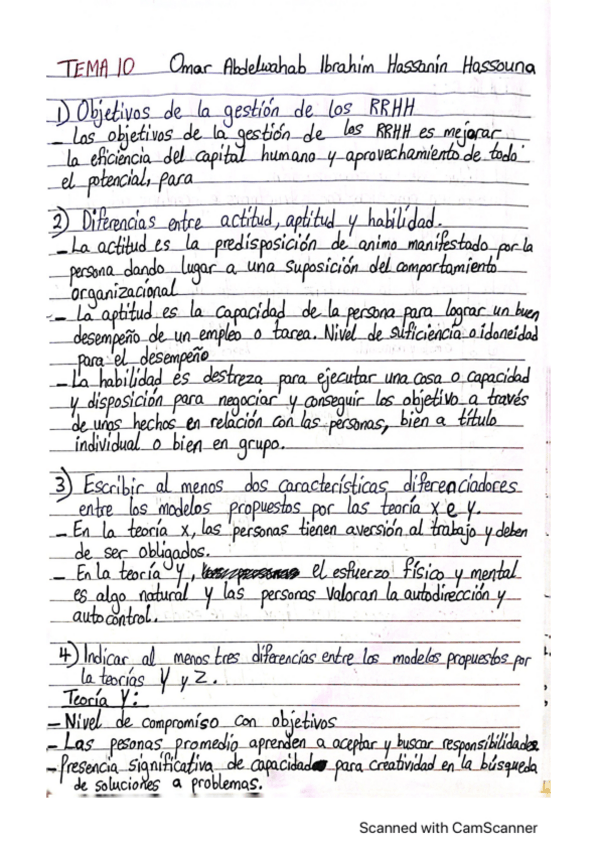 TEMA 10 Omar Abdelwahab Ibrahim Hassanin Hassouna
1) Objetivos de la gestión de los RRHH
- Los objetivos de la gestión de los RRHH es mejorar
la eficiencia del capital humano y aprovechamiento de todo
el potencial, para
2) Diferencias entre actitud, aptitud y habilidad.
- La actitud es la predisposición de animo manifestado por la
persona dando lugar a una suposición del comportamiento
organizacional
- La aptitud es la capacidad de la persona para lograr un buen
desempeño de un empleo o tarea. Nivel de suficiencia o idoneidad
para el desempeño
- La habilidad es destreza para ejecutar una cosa o capacidad
y disposición para negociar y conseguir los objetivo a través
de unos hechos en relación con las personas, bien a título
individual o bien en grupo.
3) Escribir al menos dos características diferenciadores
entre los modelos propuestos por las teoría x e y.
- En la teoría x, las personas tienen aversión al trabajo y deben
de ser obligados.
- En la teoría y, el esfuerzo físico y mental
es algo natural y las personas valoran la autodirección y
autocontrol.
4) Indicar al menos tres diferencias entre los modelos propuestos por
la teorías Y y Z.
Teoría Y:
- Nivel de compromiso con objetivos
- Las pesonas promedio aprenden a aceptar y buscar responsibilidades
- Presencia significativa de capacidad para creatividad en la búsqueda
de soluciones a problemas.
Scanned with CamScanner